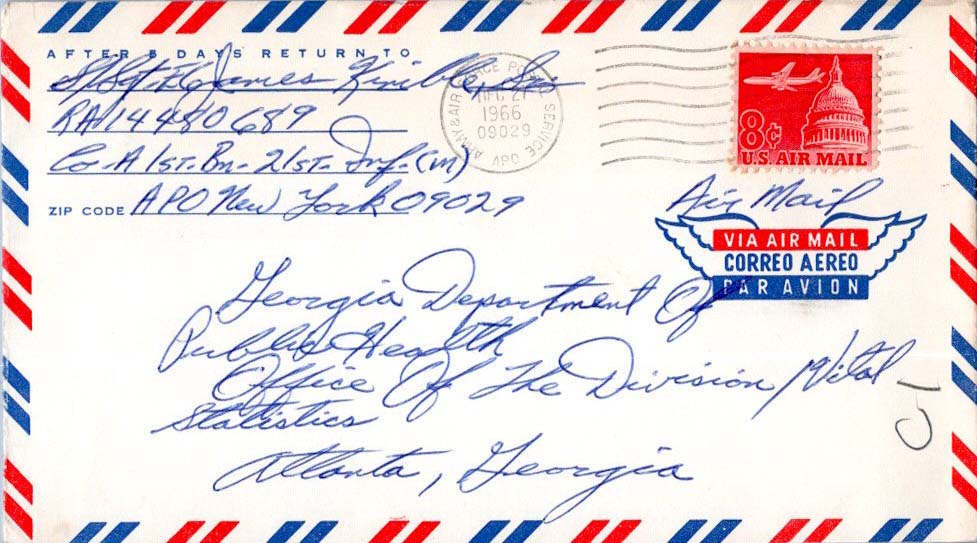 AFTER 5 DAYS RETURN TO
S/Sgt. E James Kimble, Sr.
RA14480689
Co-A 1st.-Bn- 21st- Inf-(M)
ZIP CODE APO New York 09029
ARMY & AIR FORCE POSTAL SERVICE
21
1966
09029
APO
8¢
U.S. AIR MAIL
Air Mail
VIA AIR MAIL
CORREO AEREO
PAR AVION
Georgia Department Of
Public Health
Office Of The Division/Vital
Statistics
Atlanta, Georgia